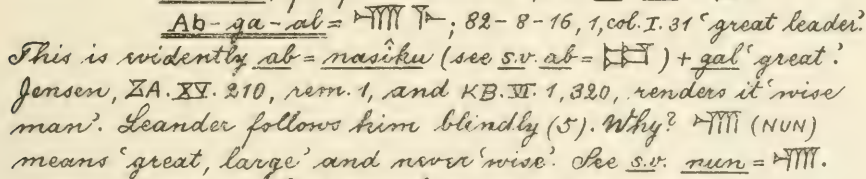 Ab-ga-al = 𒉣 𒈨; 82-8-16, 1, col. I. 31 ‘great leader.’
This is evidently ab = nasîku (see s.v. ab = 𒀊) + gal ‘great.’
Jensen, ZA. XV. 210, rem. 1, and KB. VI. 1, 320, renders it ‘wise
man’. Leander follows him blindly (5). Why? 𒉣 (NUN)
means ‘great, large’ and never ‘wise’. See s.v. nun = 𒉣.